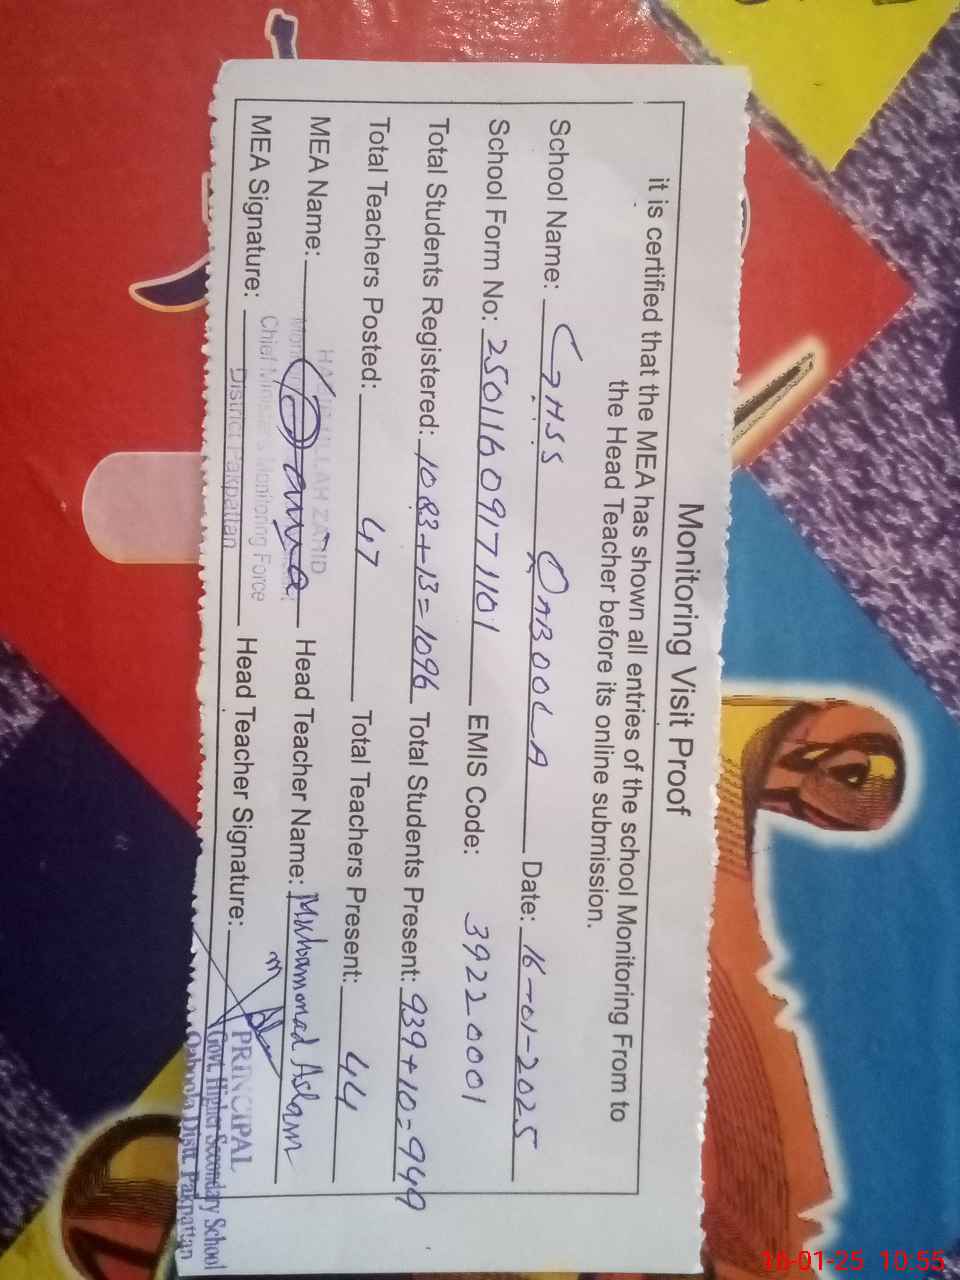 Monitoring Visit Proof
it is certified that the MEA has shown all entries of the school Monitoring From to
the Head Teacher before its online submission.
School Name: GHSS QABOOLA Date: 16-01-2025
School Form No: 25011609171101 EMIS Code: 39220001
Total Students Registered: 1083+13=1096 Total Students Present: 939+10=949
Total Teachers Posted: 47 Total Teachers Present: 44
MEA Name: Head Teacher Name: Muhammad Aslam
MEA Signature: Head Teacher Signature:
ZAHID
Chief Minister's Monitoring Force
District Pakpattan
PRINCIPAL
Govt. Higher Secondary School
Qaboola Distt. Pakpattan
16-01-25 10:55